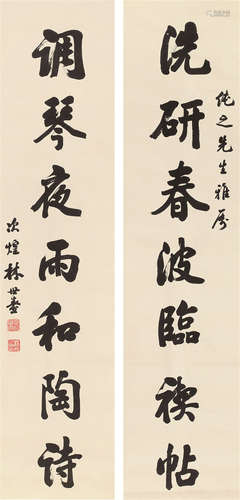 洗研春波臨禊帖
純之先生雅屬
调琴夜雨和陶诗
次煌林世燾